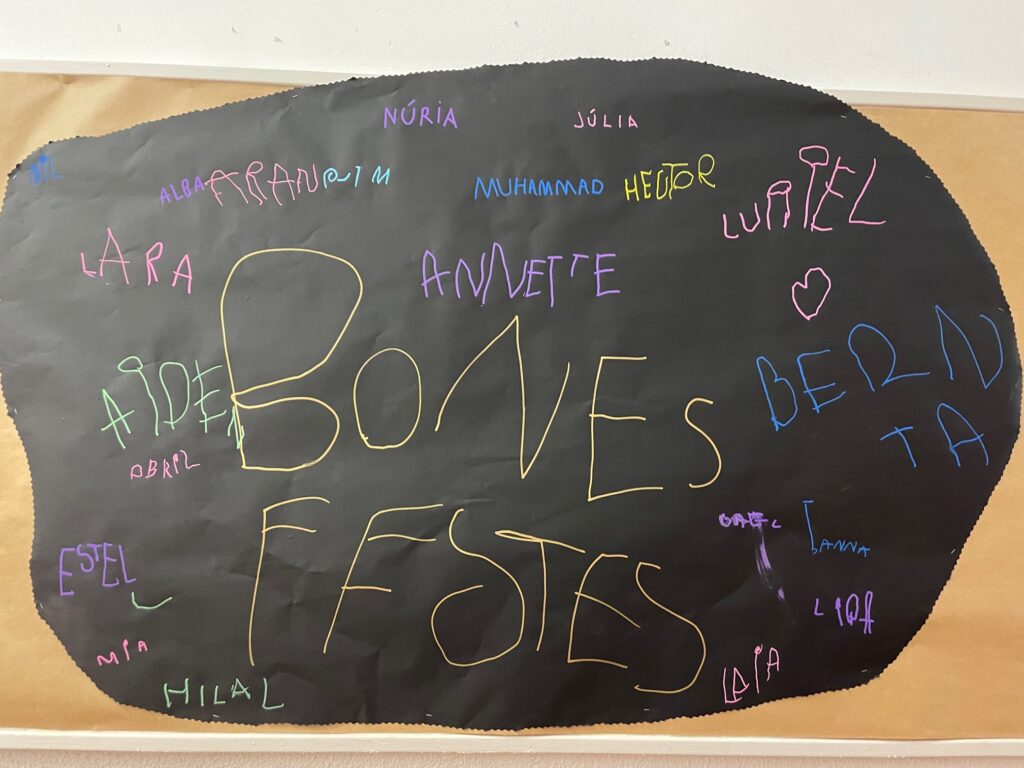 NÚRIA JÚLIA
NIL ALBA ARAN RIM MUHAMMAD HECTOR
LARA ANNETTE
BONES
AIDEN BERN
TA
ABRIL
FESTES
GAEL ANNA
ESTEL
MIA LAIA
HILAL